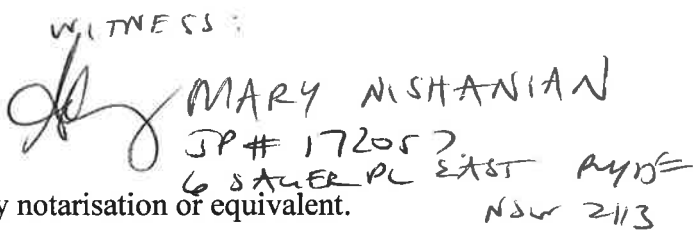 WITNESS:
MARY NISHANIAN
JP # 172057
6 SAUER PL EAST RYDE
y notarisation or equivalent.
NSW 2113